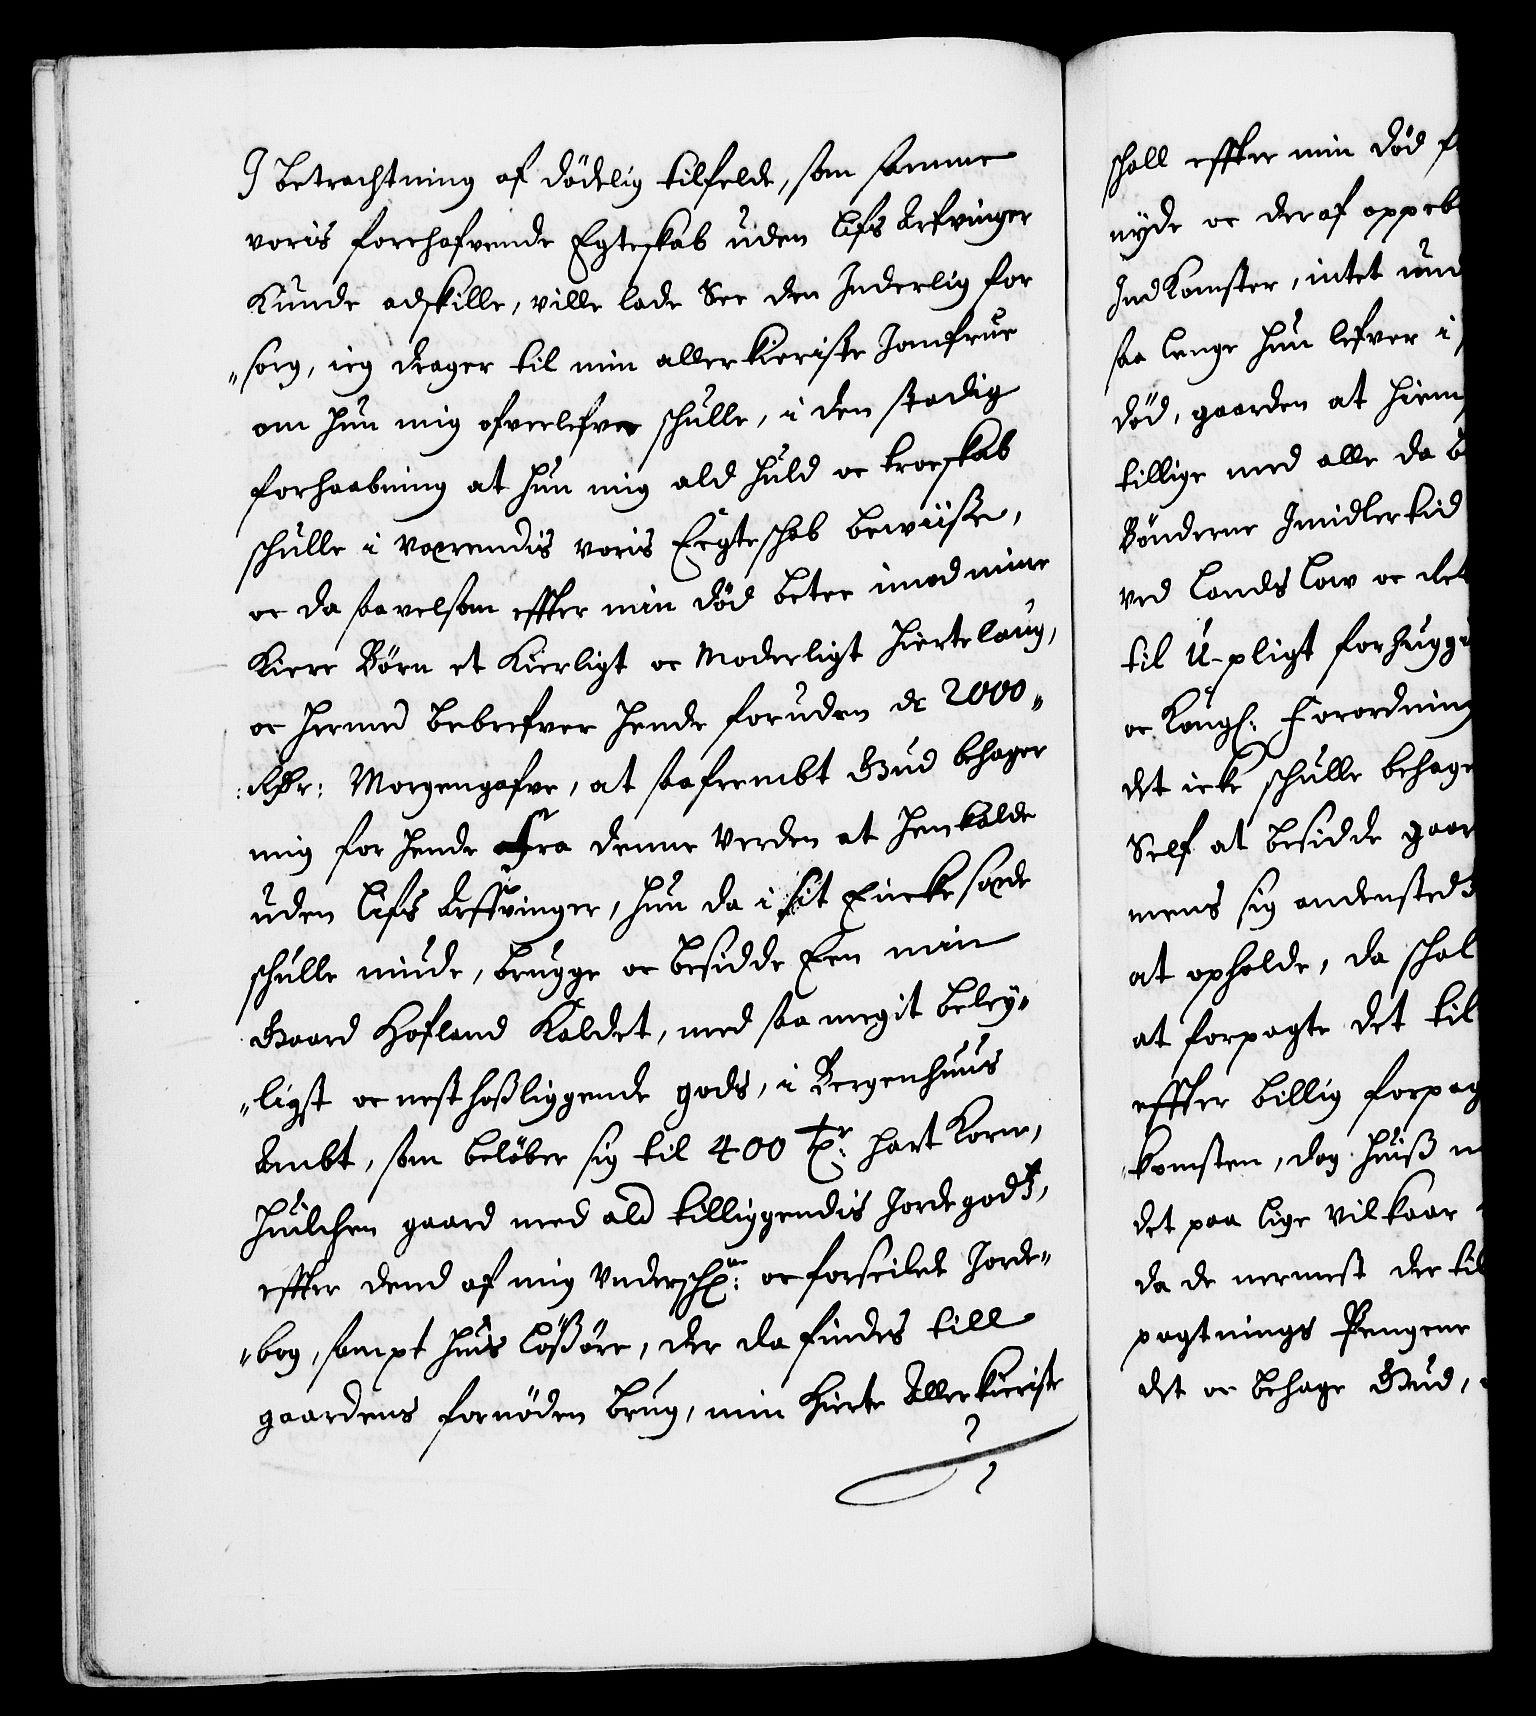 I betrachtning af dödelig tilfelde, som samme
voris forehafvende Egteskab uden Lifs Arfvinger
Kunde adskille, ville lade See den Inderlig for
"sorg, ieg drager til min allerkieriste Jomfrue
om hun mig ofverlefve schulle, i den stadig
forhaabning at hun mig ald huld oc troeskab
schulle i varendis voris Ecgteschab bewiise,
oc da saavelsom effter min död betee imod mine
Kiere Börn et Kierligt oc Moderligt hiertelaug,
oc hermed bebrefver hende foruden de 2000"
:Rdr: Morgengafve, at saafrembt Gud behager
mig for hende fra denne Verden at henkalde
uden Lifs Arffvinger, hun da i sit Enckesæde
schulle niude, brugge oc besidde Een min
Gaard Hofland Kaldet, med saa megit beley"
"ligst oc nest hoßliggende gods, i Bergenhuus
Ambt, som belöber sig til 400 Tr: hart Korn,
huilchen gaard med ald tilliggendis Jordegodß,
effter dend af mig Underschr: oc forseilet Jorde"
"bog, sampt huis Lößöre, der da findes till
gaardens fornöden brug, min Hierte Allerkieriste
schall effter min död
nyde oc deraf oppeb
IndKomster, intet und
saa lenge hun lefver i
död, gaarden at hiem
tillige med alle da
Bönderne Imidlertid
ved Lands Low oc det
til U-pligt forhugg
oc Kongl: Forordning
det icke schulle behage
Self at besidde gaar
mens sig andensteds
at opholde, da schal
at forpagte det til
effter billig forpag
komsten, dog huiß
det paa lige vilkaar
da de nermest der til
pagtnings Pengene
det oc behage Gud,